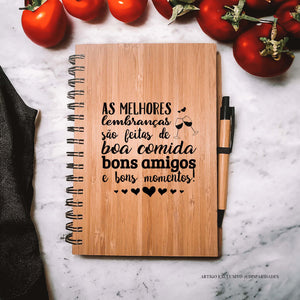 AS MELHORES
lembranças
são feitas de
boa comida
bons amigos
e bons momentos!